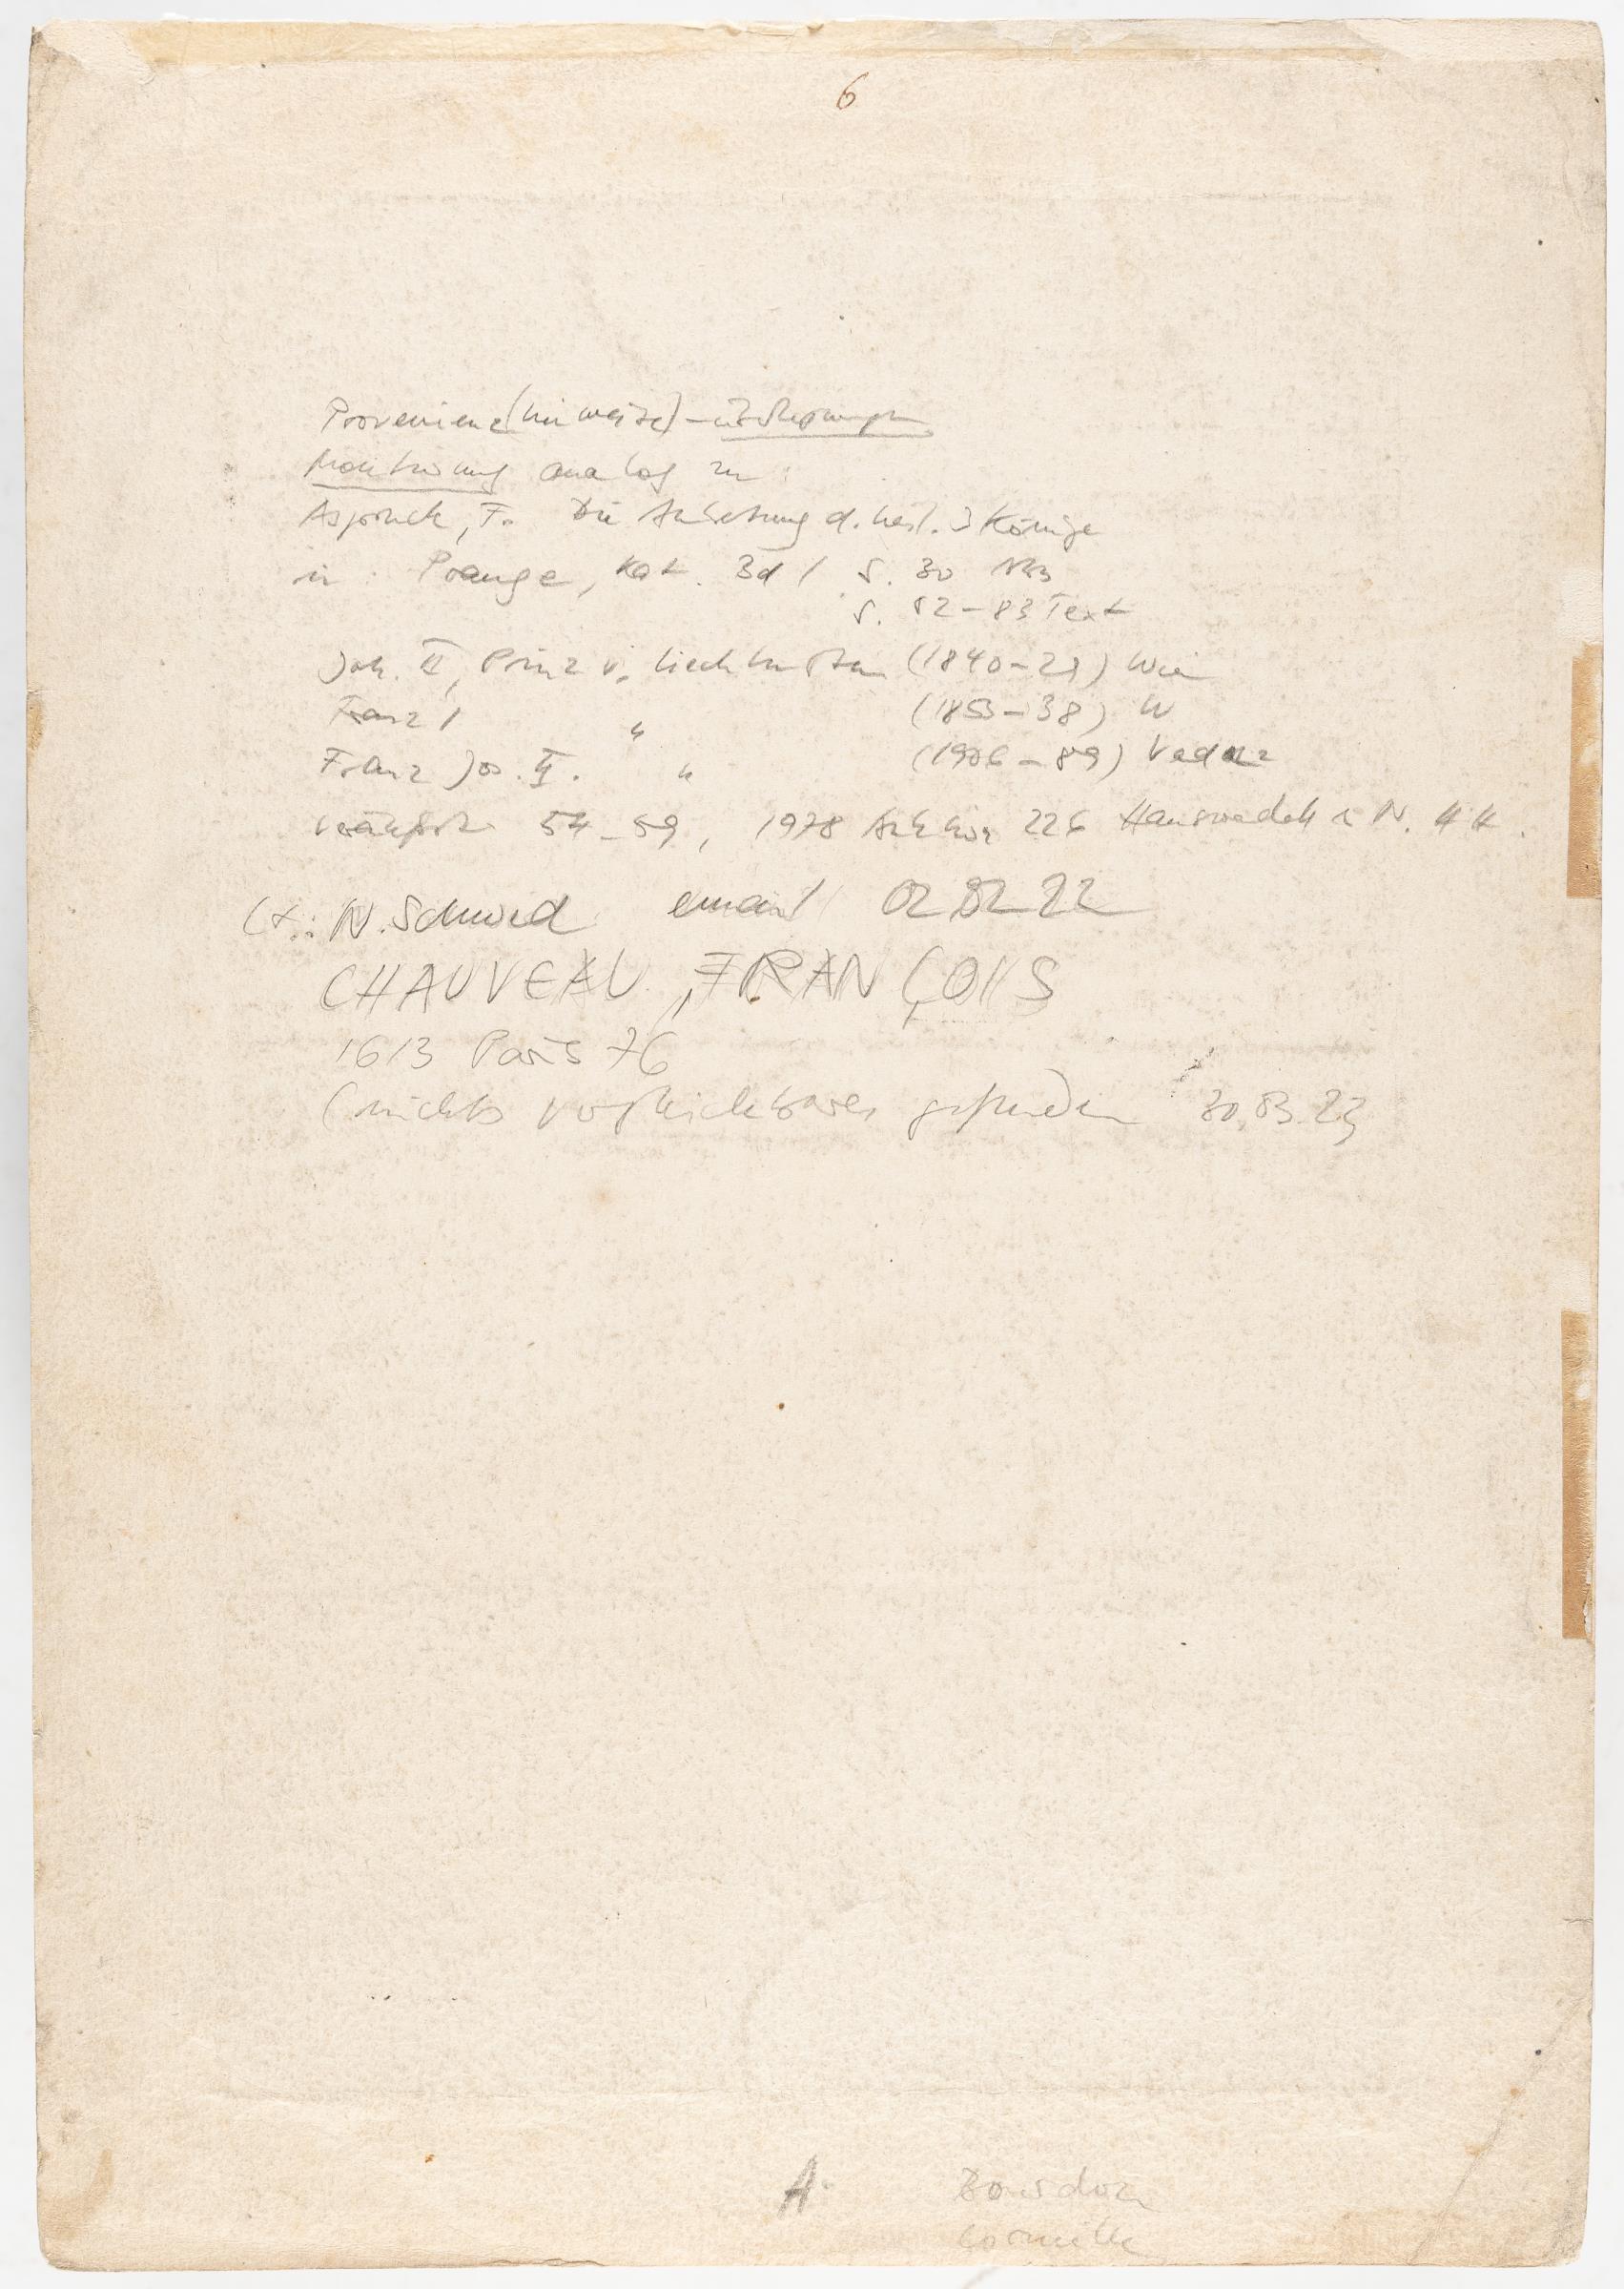 6
Provenienz(hinweise) –
Montierung analog zu
Aspruck, F. Die Anbetung d. heil. 3 Könige
in: Prange, Kat. Bd 1 S. 30 Abb
S. 82–83 Text
Joh. II, Prinz v. Liechtenstein (1840–29) Wien
Franz I " (1853–38) W
Franz Jos. II. " (1906–89) Vaduz
54–59, 1978 Auktion 226 Hauswedell & N. HH.
N. Schwed email 02 02 22
CHAUVEAU, FRANÇOIS
1613 Paris 76
(nichts vergleichbares gefunden 30.03.23
A. Bourdon
Corneille